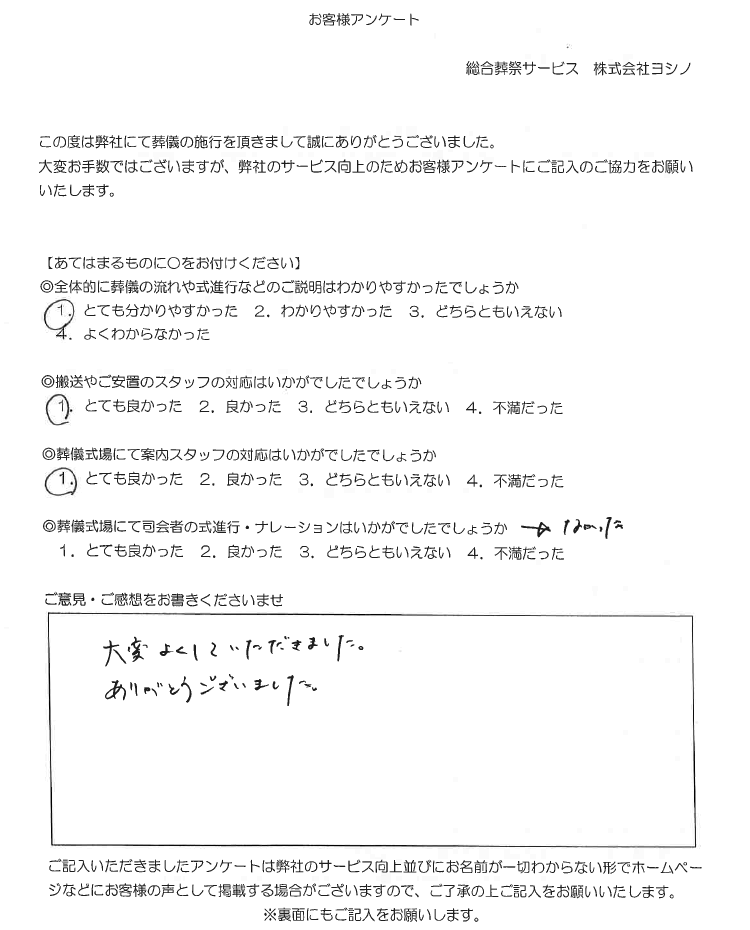 お客様アンケート
総合葬祭サービス　株式会社ヨシノ
この度は弊社にて葬儀の施行を頂きまして誠にありがとうございました。
大変お手数ではございますが、弊社のサービス向上のためお客様アンケートにご記入のご協力をお願い
いたします。
【あてはまるものに〇をお付けください】
◎全体的に葬儀の流れや式進行などのご説明はわかりやすかったでしょうか
1．とても分かりやすかった　2．わかりやすかった　3．どちらともいえない
4．よくわからなかった
◎搬送やご安置のスタッフの対応はいかがでしたでしょうか
1．とても良かった　2．良かった　3．どちらともいえない　4．不満だった
◎葬儀式場にて案内スタッフの対応はいかがでしたでしょうか
1．とても良かった　2．良かった　3．どちらともいえない　4．不満だった
◎葬儀式場にて司会者の式進行・ナレーションはいかがでしたでしょうか → なかった
1．とても良かった　2．良かった　3．どちらともいえない　4．不満だった
ご意見・ご感想をお書きくださいませ
大変よくしていただきました。
ありがとうございました。
ご記入いただきましたアンケートは弊社のサービス向上並びにお名前が一切わからない形でホームペー
ジなどにお客様の声として掲載する場合がございますので、ご了承の上ご記入をお願いいたします。
※裏面にもご記入をお願いします。